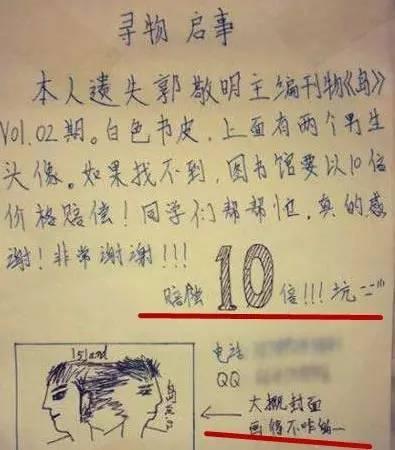 寻物 启事
本人遗失郭敬明主编刊物《岛》
Vol.02期。白色书皮，上面有两个男生
头像。如果找不到，图书馆要以10倍
价格赔偿！同学们帮帮忙，真的感
谢！非常谢谢！！！
赔偿10倍！！！坑
Island
电话
QQ
大概封面
画得不咋地